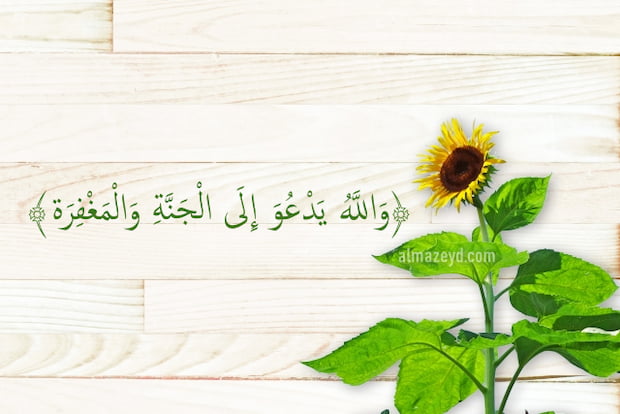 ﴿وَاللَّهُ يَدْعُوَ إِلَى الْجَنَّةِ وَالْمَغْفِرَة﴾
almazeyd.com